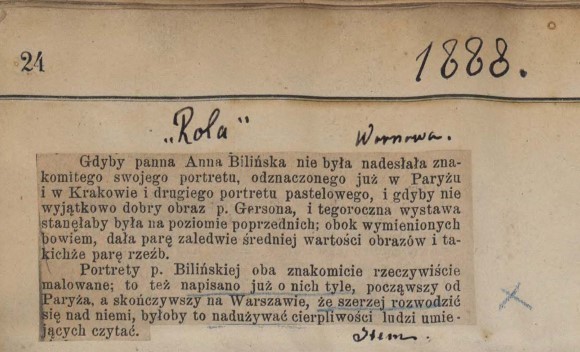 24
1888.
„Rola"
Warszawa.
Gdyby panna Anna Bilińska nie była nadesłała zna-
komitego swojego portretu, odznaczonego już w Paryżu
i w Krakowie i drugiego portretu pastelowego, i gdyby nie
wyjątkowo dobry obraz p. Gersona, i tegoroczna wystawa
stanęłaby była na poziomie poprzednich; obok wymienionych
bowiem, dała parę zaledwie średniej wartości obrazów i ta-
kichże parę rzeźb.
Portrety p. Bilińskiej oba znakomicie rzeczywiście
malowane; to też napisano już o nich tyle, począwszy od
Paryża, a skończywszy na Warszawie, że szerzej rozwodzić
się nad niemi, byłoby to nadużywać cierpliwości ludzi umie-
jących czytać.
Item.